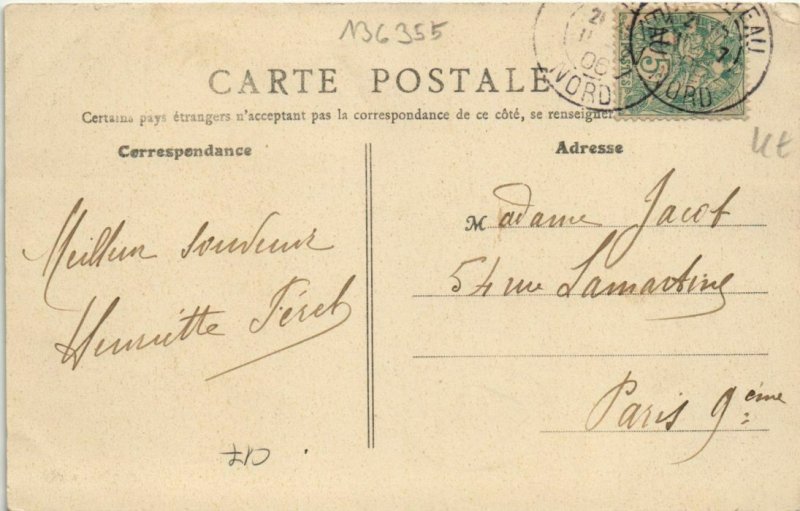 136355
CARTE POSTALE
Certains pays étrangers n'acceptant pas la correspondance de ce côté, se renseigner
Correspondance
Adresse
Meilleur souvenir
Henriette Féret
Madame Jacob
54 rue Lamartine
Paris 9ème
06
NORD
5
NORD